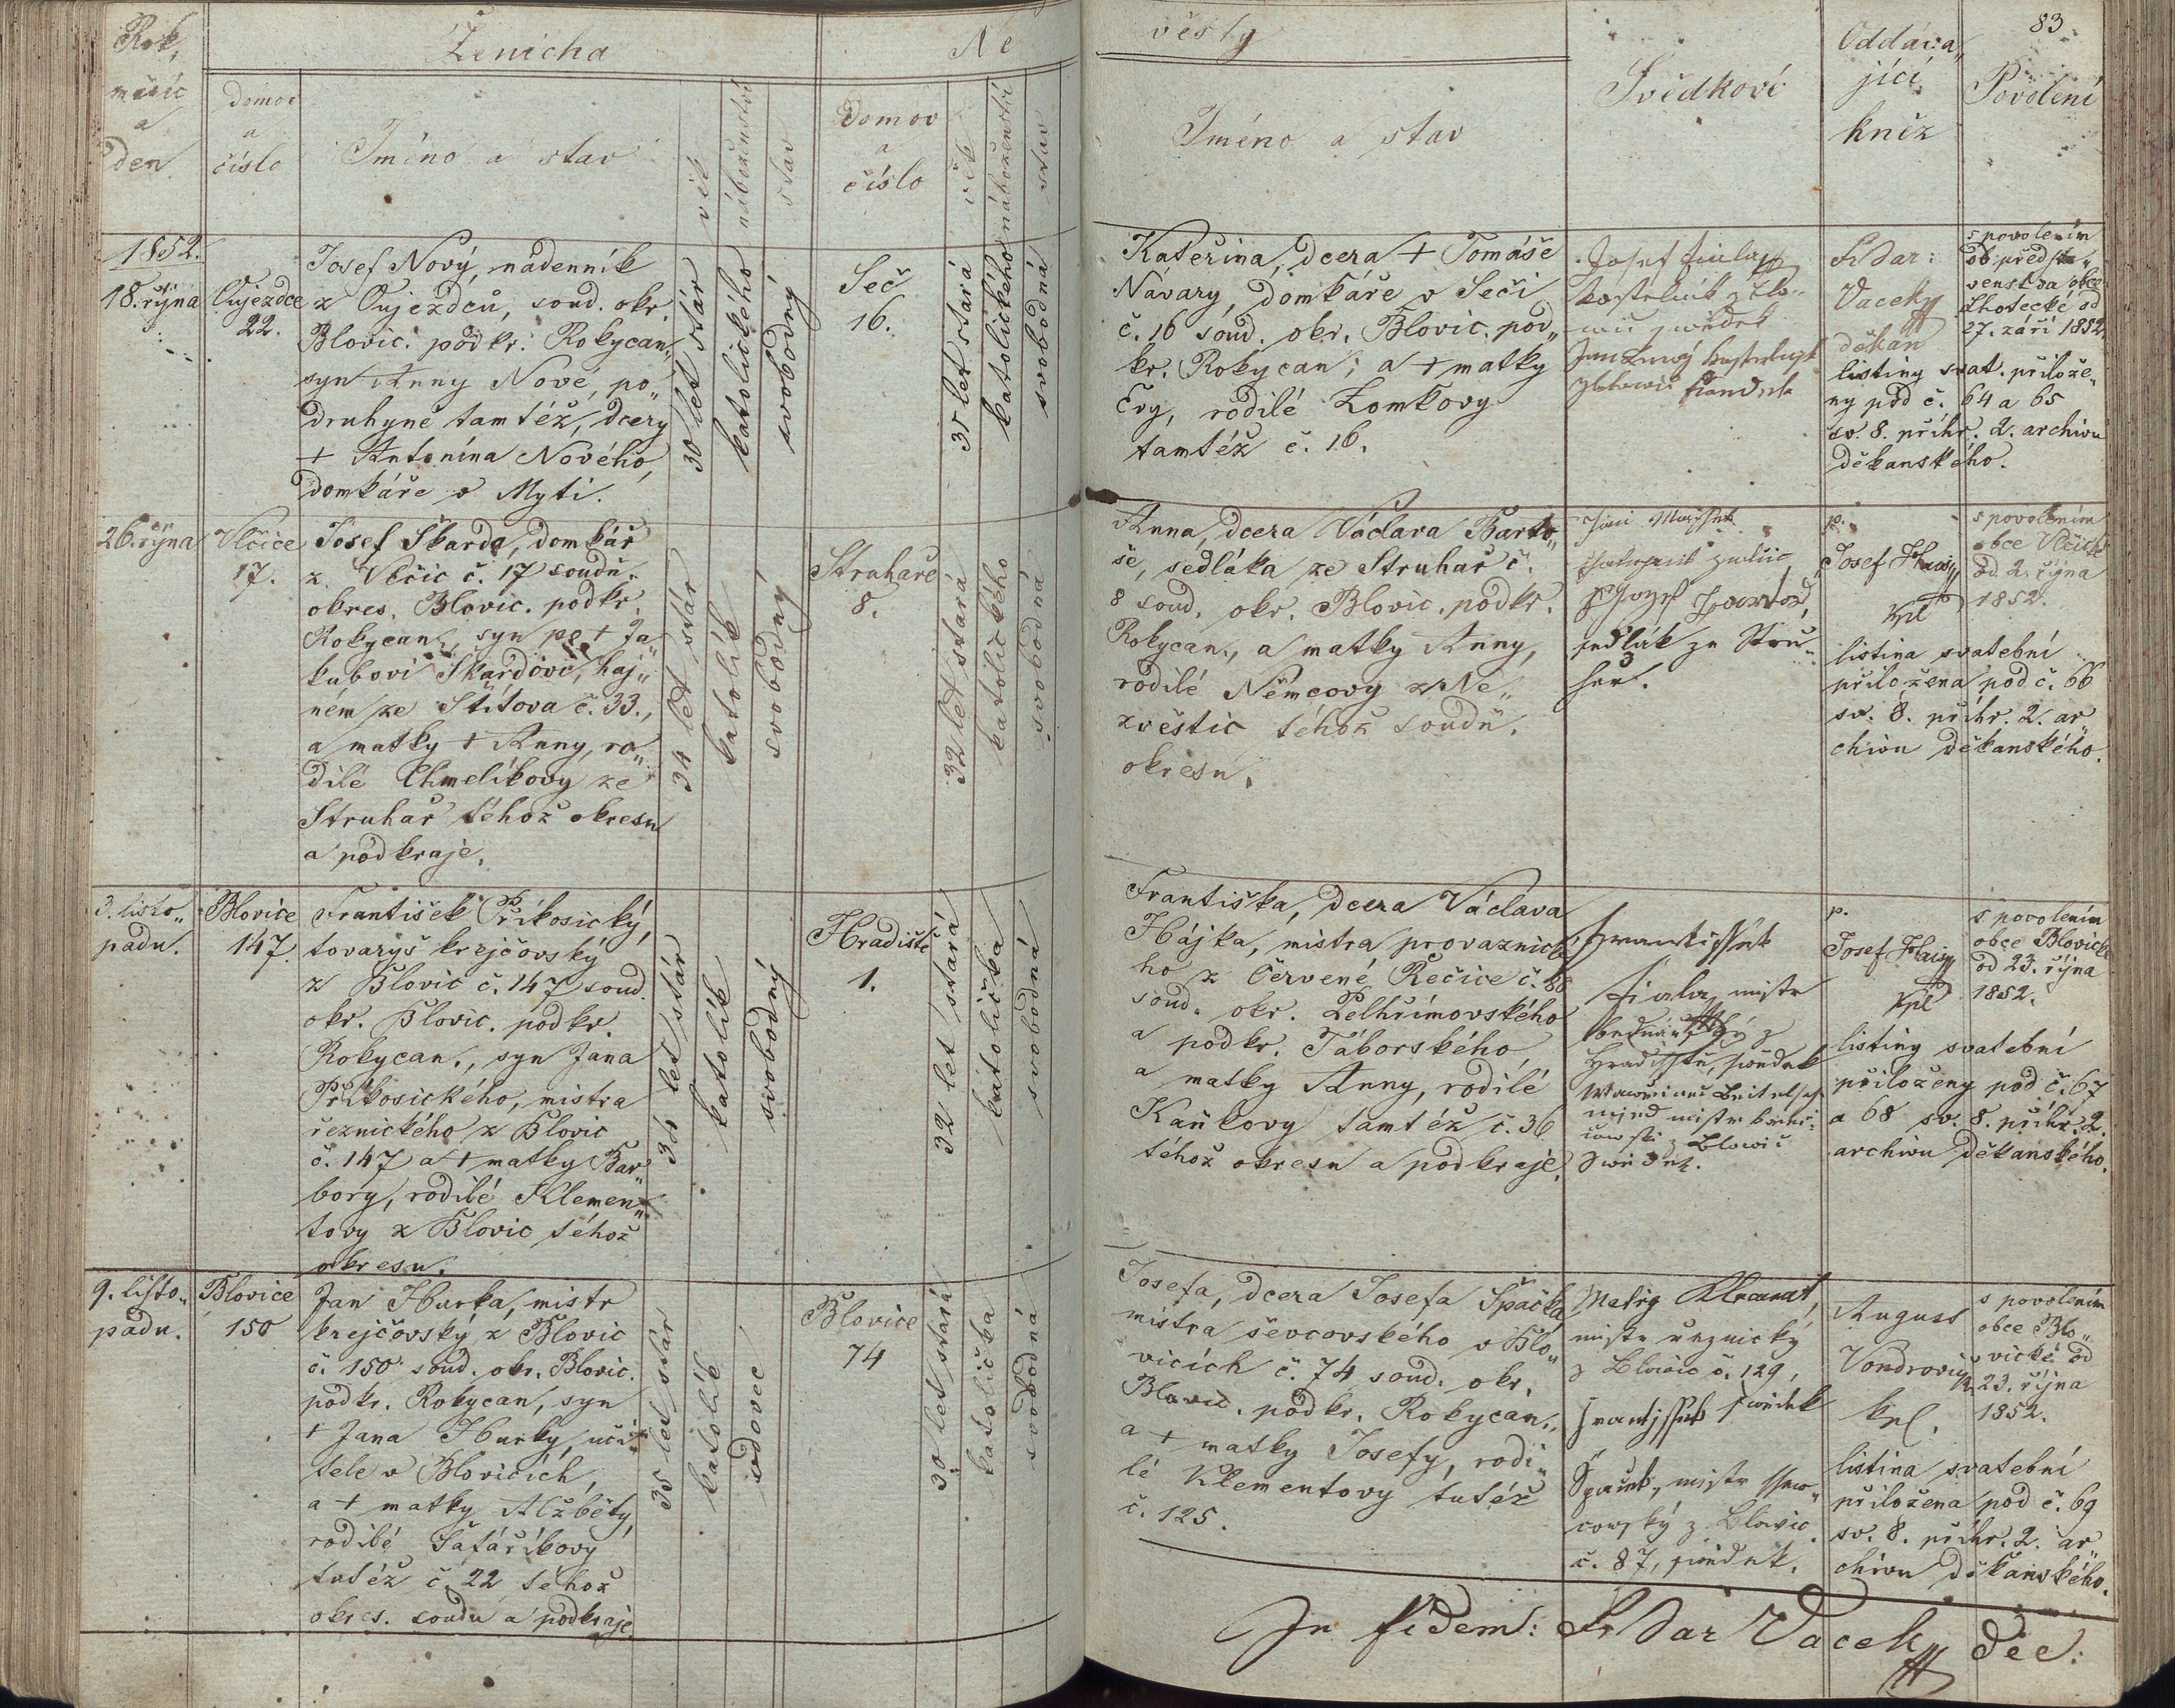 83
Rok,
měsíc
a
den
Ženicha
Ne
věsty
Svědkové
Oddáva„
jící
kněz
Povolení
domov
a
číslo
Jméno a stav
věk
náboženství
stav
Domov
a
číslo
věk
náboženství
stav
Jméno a stav
1852.
18. října
Oujezdce
22.
Josef Nový, nádenník
z Oujezdců, soud. okr.
Blovic. podkr. Rokycan.,
syn Anny Nové, po„
druhyně tamtéž, dcery
+ Antonína Nového,
domkáře v Mytí.
30 let stár
katolického
svobodný
Seč
16.
35 let stará
katolického
svobodná
Kateřina, dcera + Tomáše
Návary, domkáře v Seči
č. 16 soud. okr. Blovic. pod„
kr. Rokycan, a + matky
Evy, rodilé Lomkovy
tamtéž č. 16.
Josef Fiala
Fr Dar:
Vacek
děkan
s povolením
ob. předsta„
venstva obce
Lhotecké od
27. září 1852.
listiny svat. přilože„
ny pod č. 64 a 65
sv. 8. příhr. 2. archivu
děkanského.
26. října
Vlčice
17.
Josef Škarda, domkář
z Vlčic č. 17 soudn.
okres. Blovic. podkr.
Rokycan., syn po + Ja„
kubovi Škardovi, haj„
ném ze Štítova č. 33.,
a matky + Anny, ro„
dilé Chmelíkovy ze
Struhař téhož okresu
a podkraje.
34 let stár
katolík
svobodný
Struhaře
8.
32 let stará
katolického
svobodná
Anna, dcera Václava Barto„
še, sedláka ze Struhař č.
8 soud. okr. Blovic. podkr.
Rokycan., a matky Anny,
rodilé Němcovy z Ne„
zvěstic téhož soudn.
okresu.
sedlák ze Stru„
har.
p.
Josef
kpl
s povolením
obce Vlčické
od 2. října
1852.
listina svatební
přiložena pod č. 66
sv. 8. příhr. 2. ar„
chivu děkanského.
3. listo„
padu.
Blovice
147.
František Příkosický,
tovaryš krejčovský
z Blovic č. 147 soud.
okr. Blovic. podkr.
Rokycan., syn Jana
Příkosického, mistra
řeznického z Blovic
č. 147 a + matky Bar„
bory, rodilé Klemen„
tovy z Blovic téhož
okresu.
34 let stár
katolík
svobodný
Hradiště
1.
32 let stará
katolička
svobodná
Františka, dcera Václava
Hájka, mistra provaznické„
ho z Červené Řečice č. 88
soud. okr. Pelhřimovského
a podkr. Táborského
a matky Anny, rodilé
Kaňkovy tamtéž č. 36
téhož okresu a podkraje.
Frantissek
Fiala, mistr
z
Hradisstě, swědek
mistr
z Blowic
Swědek.
p.
Josef
kpl
s povolením
obce Blovické
od 23. října
1852.
listiny svatební
přiloženy pod č. 67
a 68 sv. 8. příhr. 2.
archivu děkanského.
9. listo„
padu.
Blovice
150
Jan Hurka, mistr
krejčovský z Blovic
č. 150 soud. okr. Blovic.
podkr. Rokycan, syn
+ Jana Hurky, uči„
tele v Blovicích,
a + matky Alžběty,
rodilé Šafaříkovy
tutéž č. 22 téhož
okres. soudu a podkraje.
35 let stár
katolík
vdovec
Blovice
74
30 let stará
katolička
svobodná
Josefa, dcera Josefa Špačka
mistra ševcovského v Blo„
vicích č. 74 soud. okr.
Blovic. podkr. Rokycan.,
a + matky Josefy, rodi„
lé Klementovy tutéž
č. 125.
Matěg
mistr řeznický
z Blowic č. 129,
swědek
Frantissek
Špaček, mistr ssew„
cowský z Blowic
č. 87, swědek.
August
Vondrovic
kpl.
s povolením
obce Blo„
vické od
23. října
1852.
listina svatební
přiložena pod č. 69
sv. 8. příhr. 2. ar„
chivu děkanského.
In fidem: Fr Dar Vacek Děc: